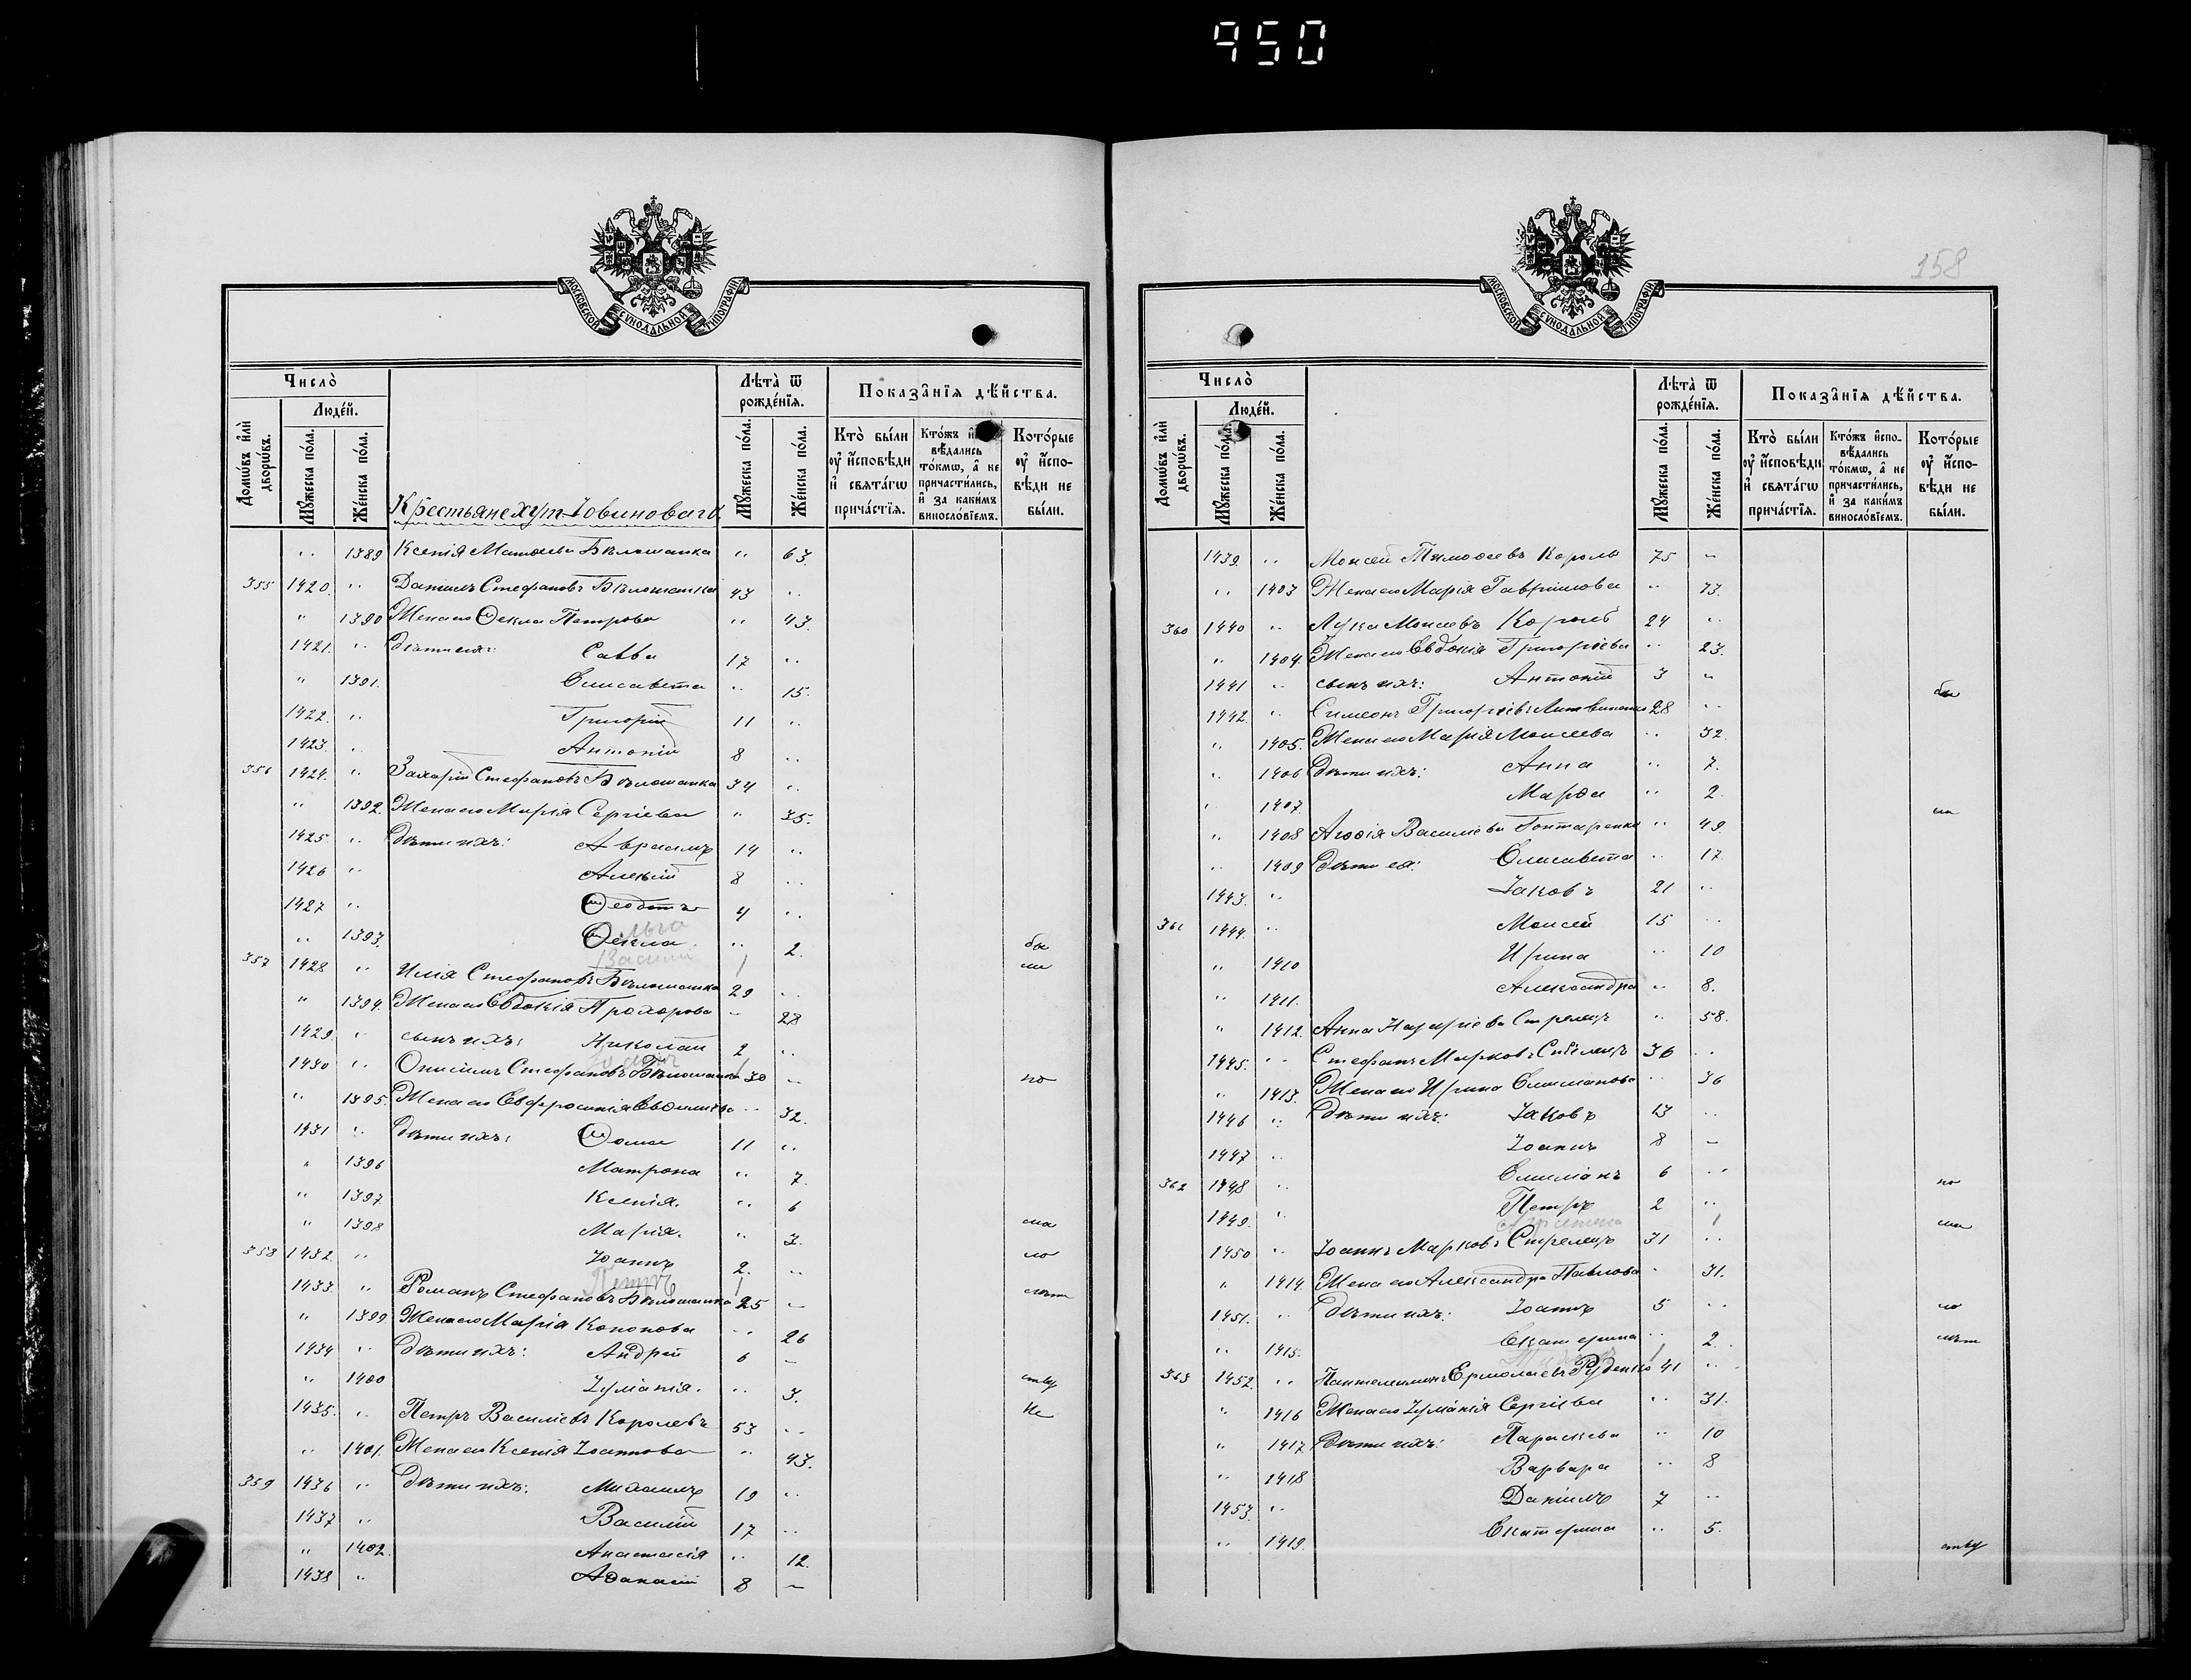 950
МОСКОВСКОЙ СѴНОДАЛЬНОЙ ТИПОГРАФІИ
Число̀
Людей.
Домѡвъ и҆лѝ дворѡвъ.
Мꙋжеска по́ла.
Же́нска по́ла.
Лѣ́та ѿ рожде́нїѧ.
Мꙋжеска по́ла.
Же́нска по́ла.
Показа̑нїѧ дѣ́йства.
Кто̀ бы́ли ᲂу҆ и҆́сповѣди и҆ свѧта́гѡ прича́стїѧ.
Кто́жъ и҆сповѣ́дались то́кмѡ, а҆ не причасти́лись, и҆ за каки́мъ винословїемъ.
Кото́рыѧ ᲂу҆ и҆́сповѣди не бы́ли.
Крестьяне хут Іовиноваго
" 1389 Ксенія Матѳеева Бѣлошапка " 63.
355 1420. " Даніилъ Стефановъ Бѣлошапка 43 "
" 1390 Жена его Ѳекла Петрова " 43.
1421. " Дѣти ихъ: Савва 17 "
" 1391. Елисавета " 15.
1422. " Григорій 11 "
1423. " Антоній 8 "
356 1424. " Захарій Стефановъ Бѣлошапка 34 "
" 1392. Жена его Марія Сергіева " 35.
1425. " Дѣти ихъ: Авраамъ 14 "
1426 " Алексій 8 "
1427 " Ѳеодотъ 4 "
" 1393. Ѳекла " 2. бы
Василій 1
357 1428 " Илія Стефановъ Бѣлошапка 29 " ли
" 1394. Жена его Евдокія Прохорова " 28
1429. " сынъ ихъ: Николай 2 "
1430 " Онисимъ Стефановъ Бѣлошапка 30 " по
" 1395. Жена его Евфросинія Евфиміева " 32.
1431 " Дѣти ихъ: Ѳома 11 "
" 1396 Матрона " 7.
" 1397 Ксенія. " 6
" 1398 Марія. " 3. ма
358 1432. " Іоаннъ 2. " ло
Петръ 1
1433. " Романъ Стефановъ Бѣлошапка 25 " лѣт
" 1399 Жена его Марія Кононова " 26
1434 " Дѣти ихъ: Андрей 6 "
" 1400 Іуліанія. " 3. ству
1435. " Петръ Василіевъ Королевъ 53 " Не
" 1401. Жена его Ксенія Іоаннова " 43.
359 1436 " Дѣти ихъ: Михаилъ 19 "
1437 " Василій 17 "
" 1402. Анастасія " 12.
1438 " Аѳанасій 8 "
158
МОСКОВСКОЙ СѴНОДАЛЬНОЙ ТИПОГРАФІИ
Число̀
Людей.
Домѡвъ и҆лѝ дворѡвъ.
Мꙋжеска по́ла.
Же́нска по́ла.
Лѣ́та ѿ рожде́нїѧ.
Мꙋжеска по́ла.
Же́нска по́ла.
Показа̑нїѧ дѣ́йства.
Кто̀ бы́ли ᲂу҆ и҆́сповѣди и҆ свѧта́гѡ прича́стїѧ.
Кто́жъ и҆сповѣ́дались то́кмѡ, а҆ не причасти́лись, и҆ за каки́мъ винословїемъ.
Кото́рыѧ ᲂу҆ и҆́сповѣди не бы́ли.
1439. " Моисей Тимоѳеевъ Король 75 "
" 1403 Жена его Марія Гавріилова " 73.
360 1440 " Лука Моисеевъ Король 24 "
" 1404. Жена его Евдокія Григоріева " 23.
1441 " сынъ ихъ: Антоній 3 " бы
1442. " Симеонъ Григоріевъ Литвиненко 28 "
" 1405. Жена его Марія Моисеева " 32.
" 1406 Дѣти ихъ: Анна " 7.
" 1407. Марѳа " 2. ли
" 1408 Агаѳія Василіева Гонтаренко " 49
" 1409 Дѣти ея: Елисавета " 17.
1443. " Іаковъ 21 "
361 1444. " Моисей 15 "
" 1410 Ирина " 10
" 1411. Александра " 8.
" 1412. Анна Назаріева Стрелецъ " 58.
1445. " Стефанъ Марковъ Стрелецъ 36 "
" 1413. Жена его Ирина Емиліанова " 36
1446 " Дѣти ихъ: Іаковъ 13 "
1447 " Іоаннъ 8 "
362 1448 " Емиліанъ 6 " по
1449. " Петръ 2 "
1 ма
1450 " Іоаннъ Марковъ Стрелецъ 31 "
" 1414. Жена его Александра Павлова " 31.
1451. " Дѣти ихъ: Іоаннъ 5 " ло
" 1415. Екатерина " 2. лѣт
1
363 1452. " Пантелеимонъ Ермолаевъ Руденко 41 "
" 1416 Жена его Іуліанія Сергіева " 31.
" 1417 Дѣти ихъ: Параскева " 10
" 1418 Варвара " 8
1453. " Даніилъ 7 "
" 1419. Екатерина " 5. ству